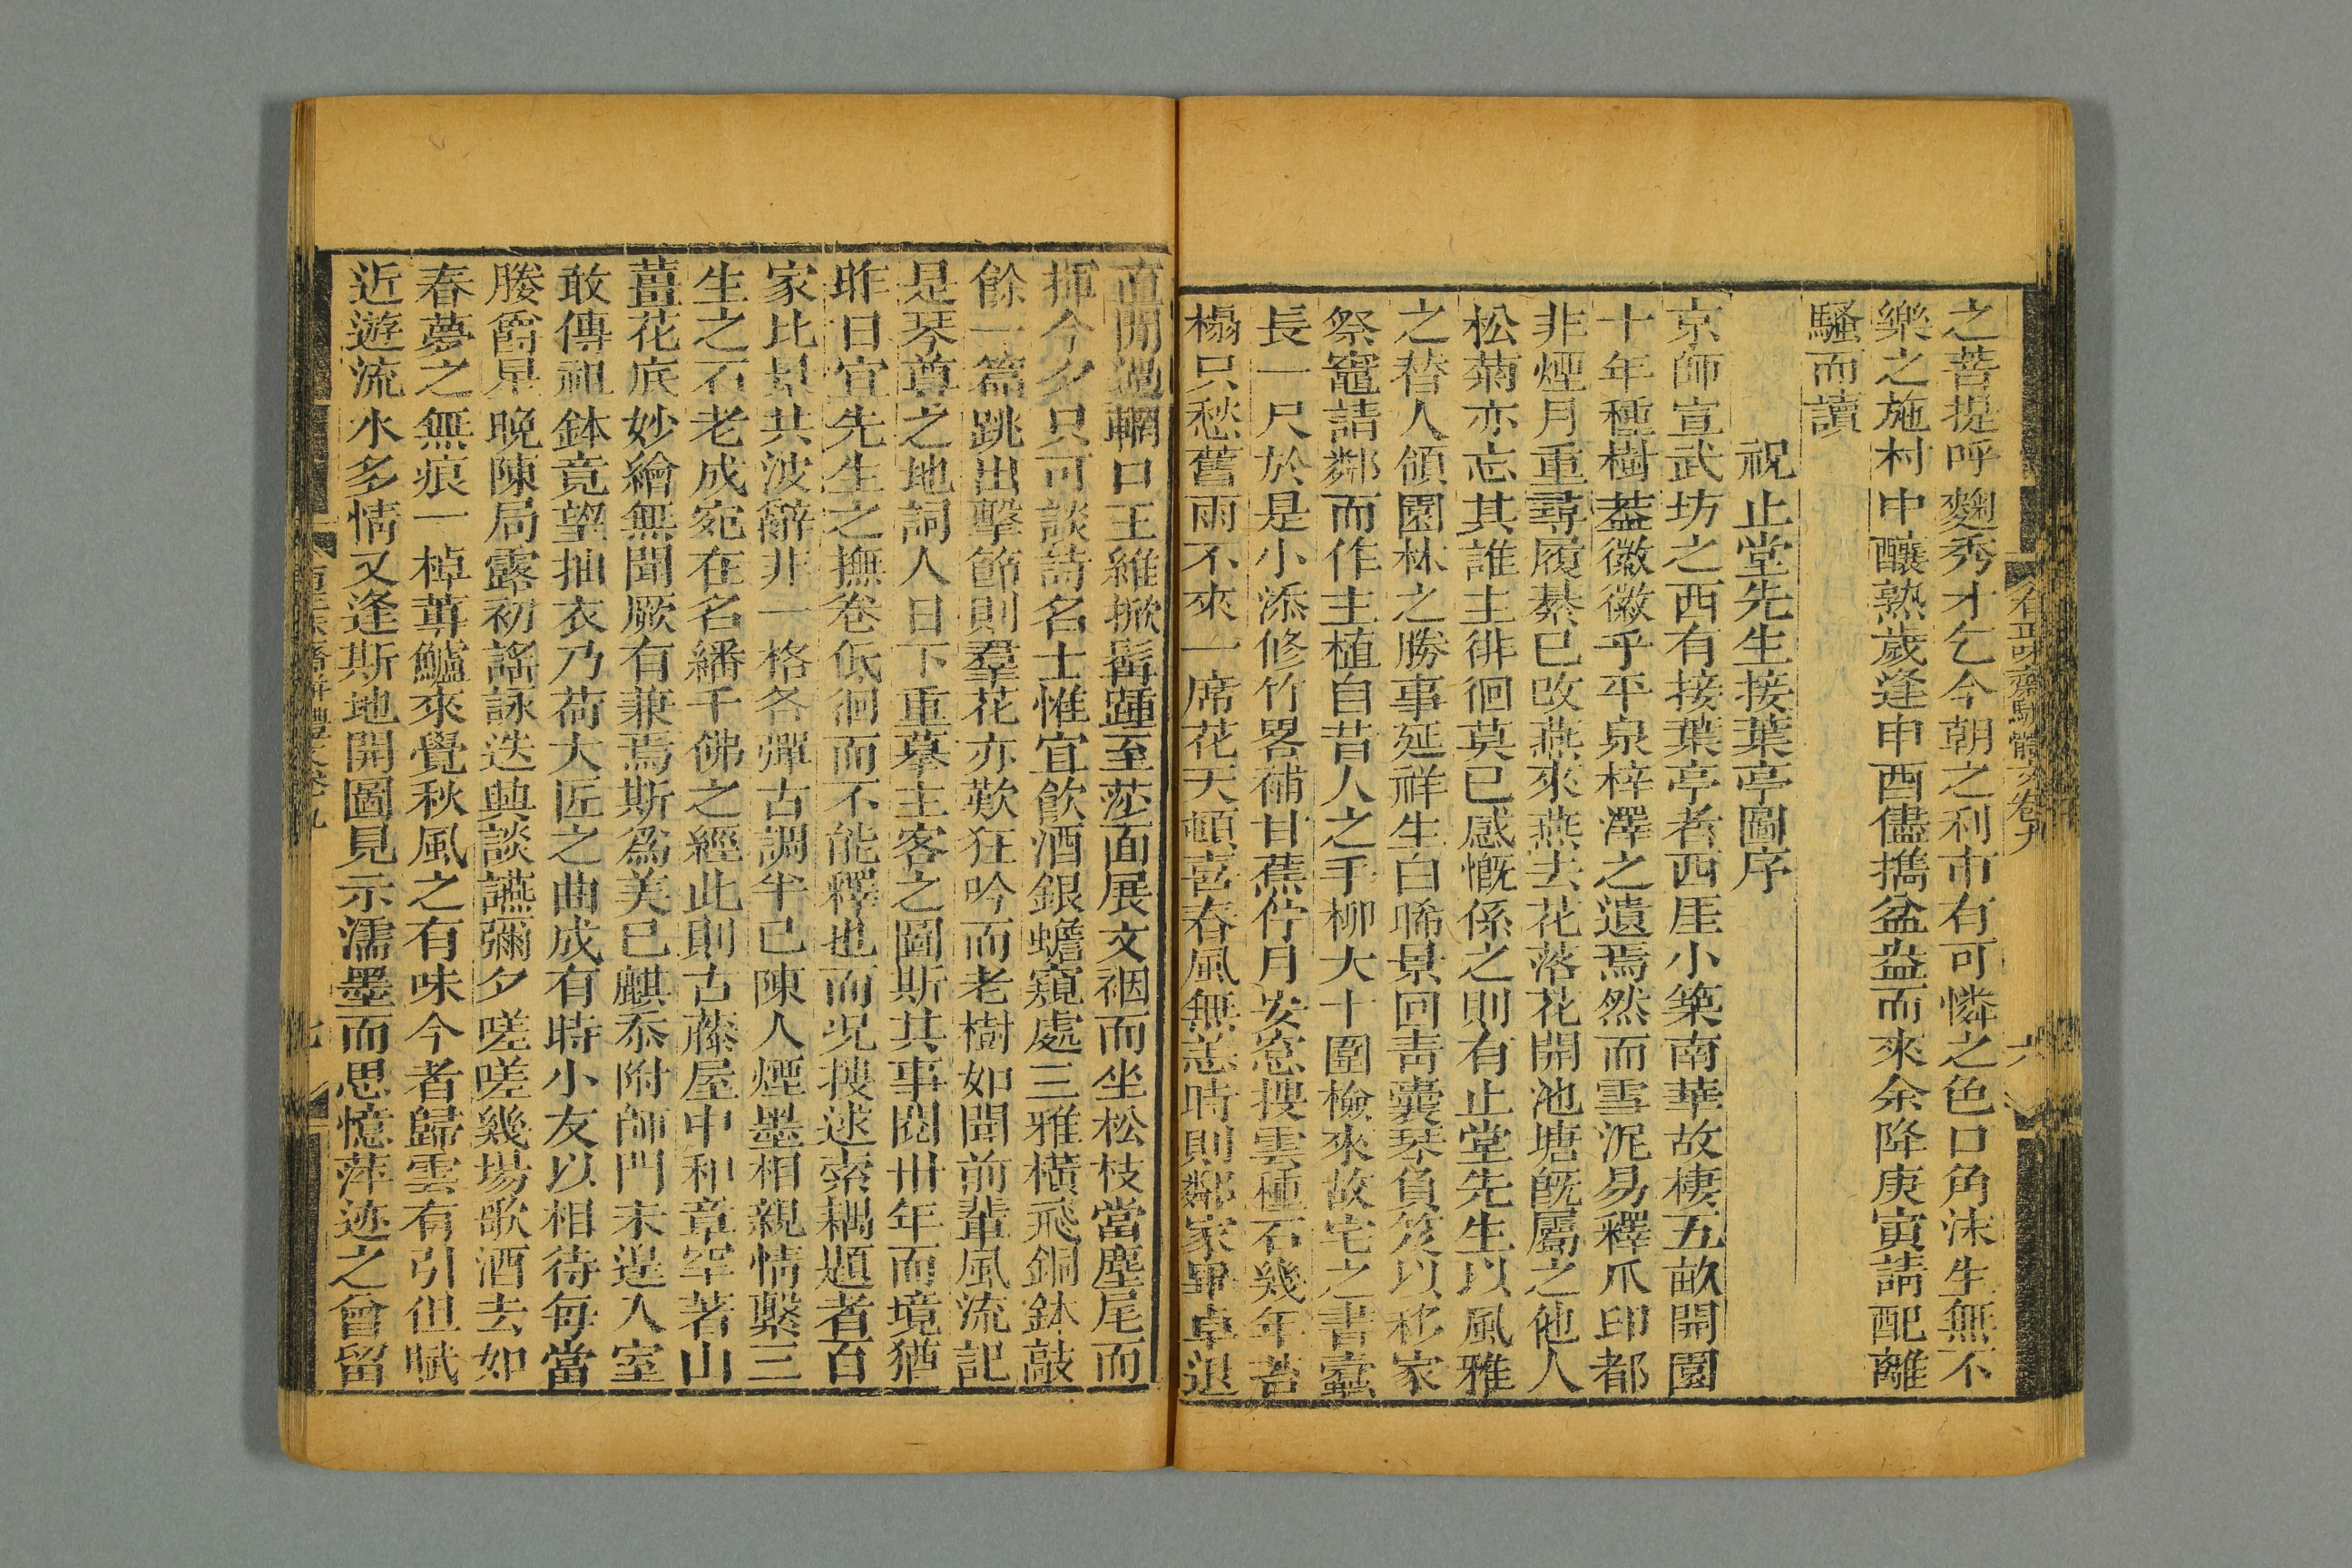 之菩提呼麴秀才乞今朝之利市有可憐之色口角沫生無不
樂之施村中釀熟歲逢申酉儘攜盆盎而來余降庚寅請配離
騷而讀
祝止堂先生接葉亭圖序
京師宣武坊之西有接葉亭者西厓小築南華故棲五畝開園
十年種樹葢徽徽乎平泉梓澤之遺焉然而雪泥易釋爪印都
非煙月重尋履綦已改燕來燕去花落花開池塘旣屬之他人
松菊亦忘其誰主徘徊莫已感慨係之則有止堂先生以風雅
之替人領園林之勝事延祥生白晞景回靑囊琴負笈以移家
祭竈請鄰而作主植自昔人之手柳大十圍檢來故宅之書蠹
長一尺於是小添修竹畧補甘蕉佇月安窓搜雲種石幾年苔
榻只愁舊雨不來一席花天頓喜春風無恙時則鄰家畢卓退
直閒過輞口王維掀髯踵至莎面展文裀而坐松枝當麈尾而
揮今夕只可談詩名士惟宜飲酒銀蟾窺處三雅橫飛銅鉢敲
餘一篇跳出擊節則羣花亦歎狂吟而老樹如聞前輩風流記
是琴尊之地詞人日下重摹主客之圖斯其事閱卅年而境猶
昨日宜先生之撫卷低徊而不能釋也而況搜逑索耦題者百
家比景共波辭非一格各彈古調半已陳人煙墨相親情繫三
生之石老成宛在名繙千佛之經此則古藤屋中和章罕著山
薑花底妙繪無聞厥有兼焉斯爲美已麒忝附師門未遑入室
敢傳祖鉢竟望抽衣乃荷大匠之曲成有時小友以相待每當
媵爵星晚陳局露初謠詠迭興談讌彌夕嗟嗟幾場歌酒去如
春夢之無痕一棹蓴鱸來覺秋風之有味今者歸雲有引但賦
近遊流水多情又逢斯地開圖見示濡墨而思憶萍迹之曾留
有正味齋駢體文卷九
六